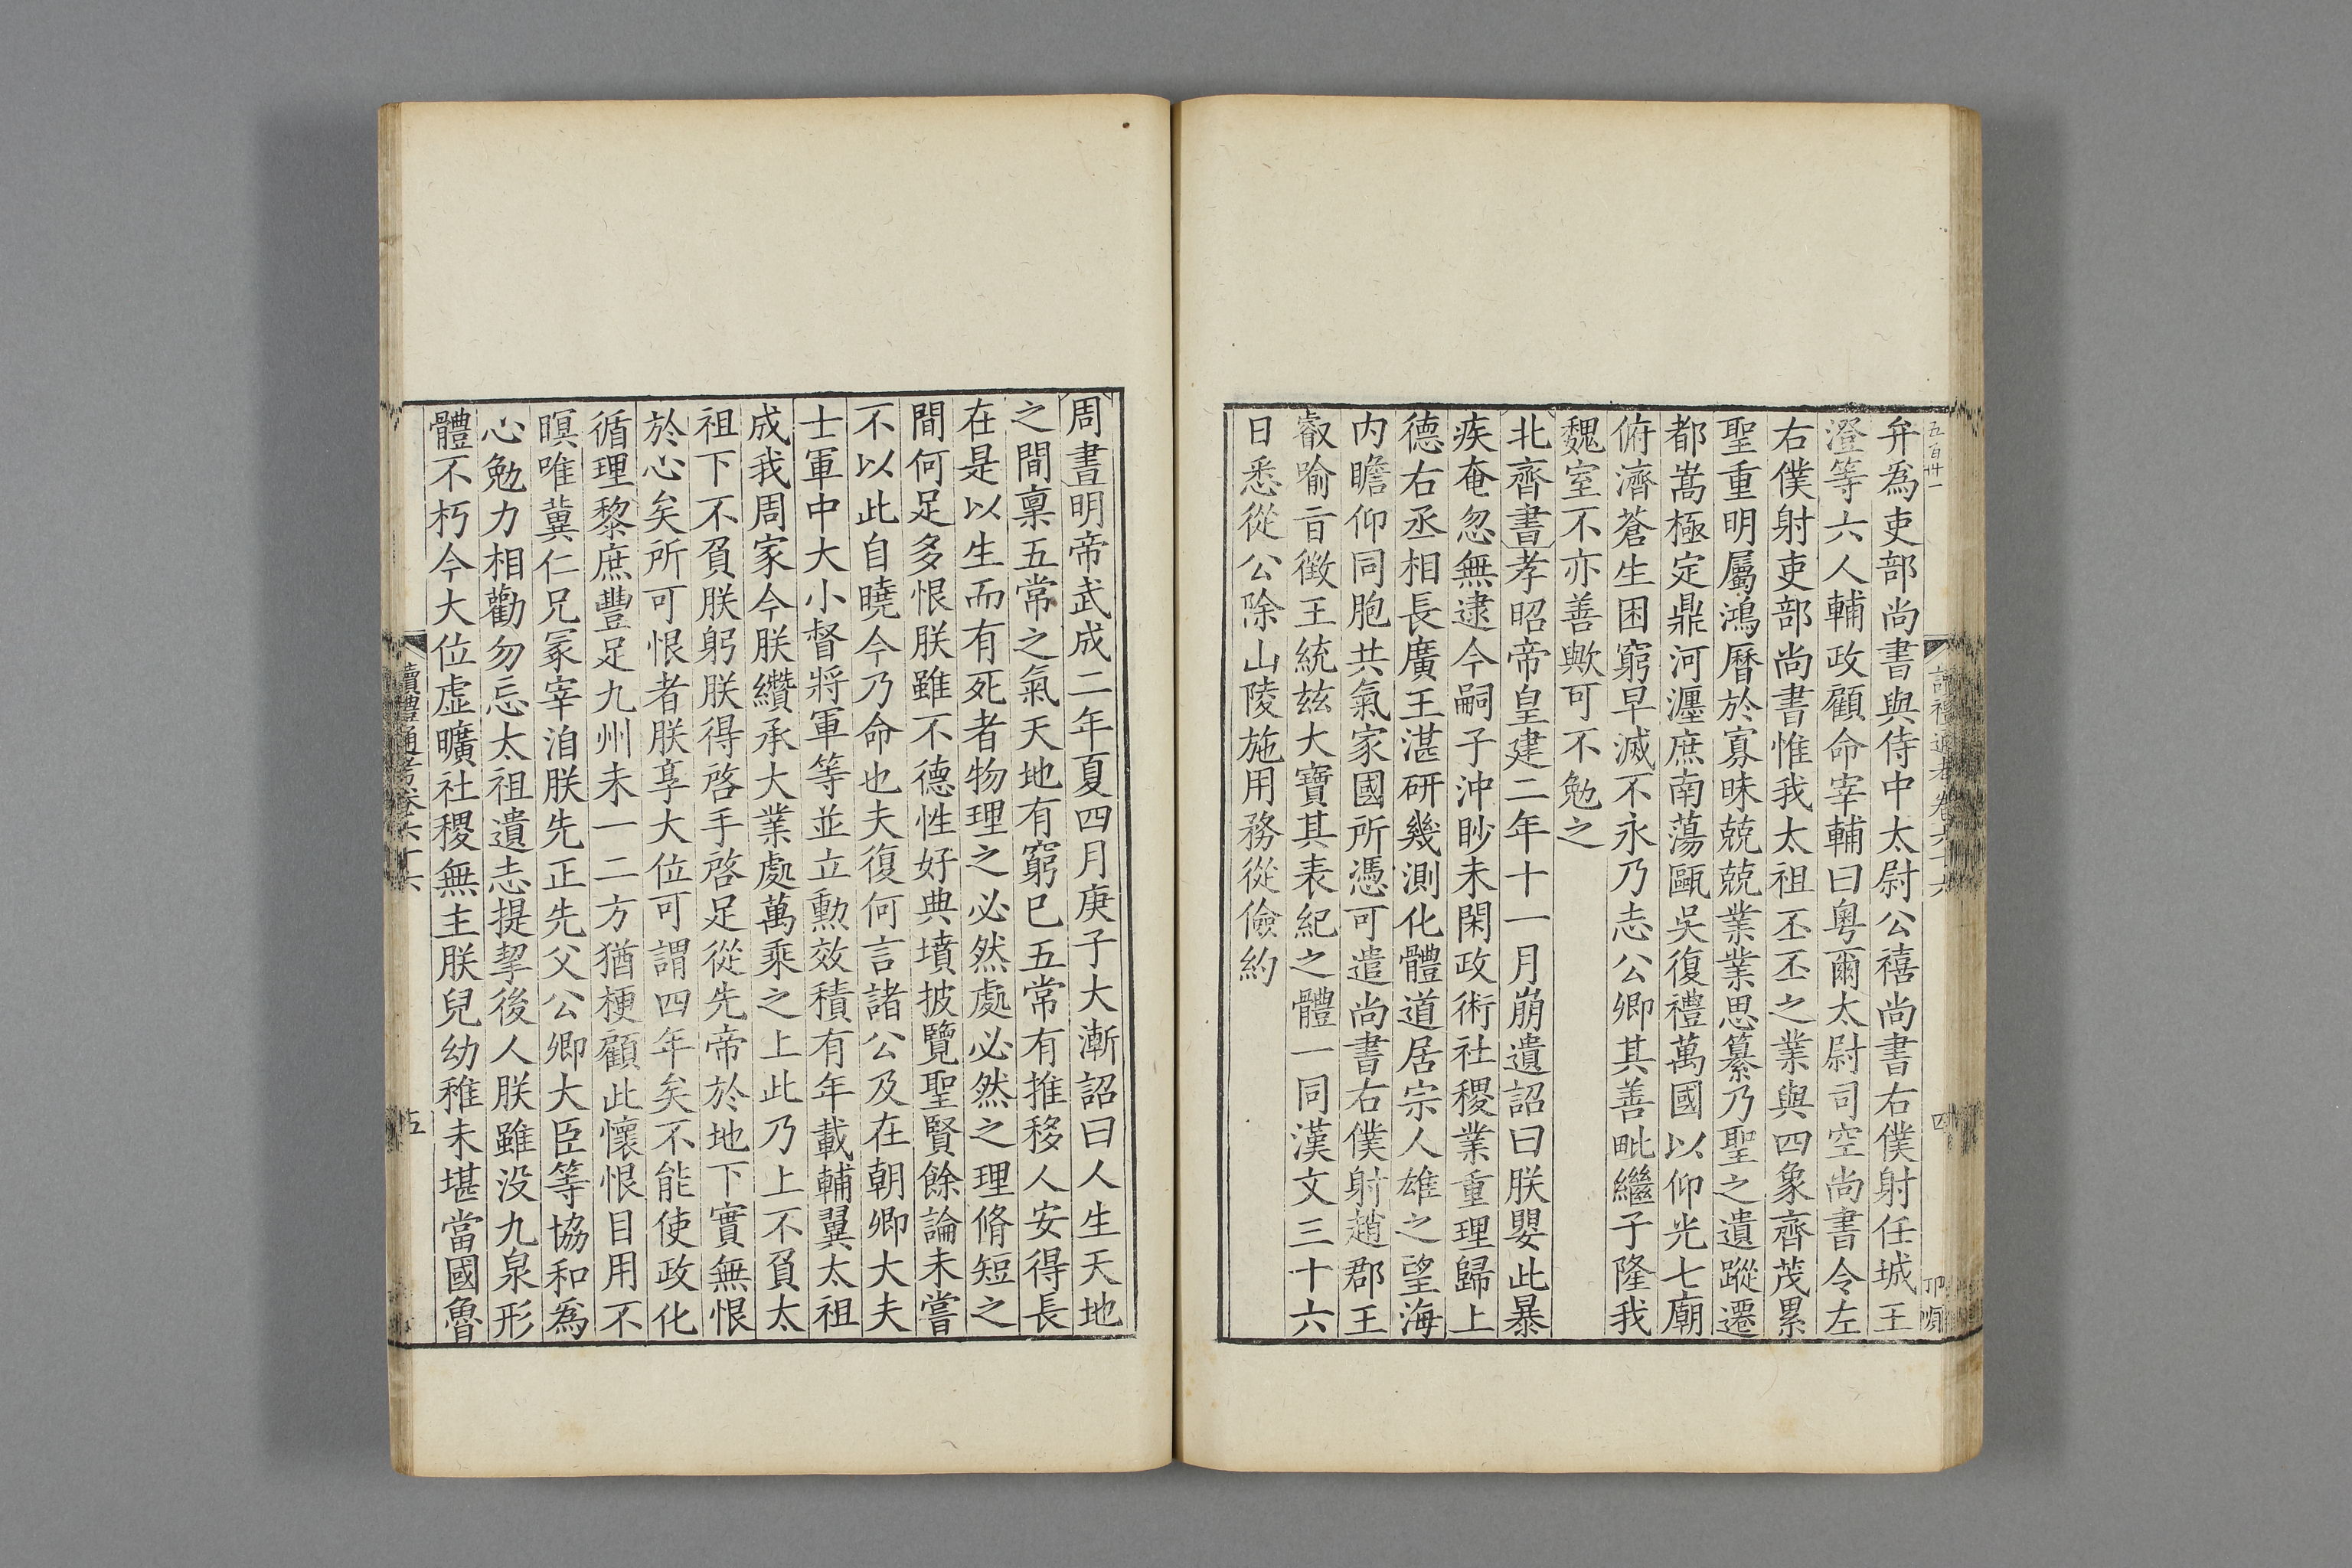 五百卅一
讀禮通考卷六十六
四
弁為吏部尚書與侍中太尉公禧尚書右僕射任城王
澄等六人輔政顧命宰輔曰粵爾太尉司空尚書令左
右僕射吏部尚書惟我太祖丕丕之業與四象齊茂累
聖重明屬鴻曆於寡昧兢兢業業思纂乃聖之遺蹤遷
都嵩極定鼎河瀍庶南蕩甌吳復禮萬國以仰光七廟
俯濟蒼生困窮早滅不永乃志公卿其善毗繼子隆我
魏室不亦善歟可不勉之
北齊書孝昭帝皇建二年十一月崩遺詔曰朕嬰此暴
疾奄忽無逮今嗣子沖眇未閑政術社稷業重理歸上
德右丞相長廣王湛研幾測化體道居宗人雄之望海
内瞻仰同胞共氣家國所憑可遣尚書右僕射趙郡王
叡喻旨徵王統玆大寶其表紀之體一同漢文三十六
日悉從公除山陵施用務從儉約
周書明帝武成二年夏四月庚子大漸詔曰人生天地
之間稟五常之氣天地有窮已五常有推移人安得長
在是以生而有死者物理之必然處必然之理脩短之
間何足多恨朕雖不德性好典墳披覽聖賢餘論未嘗
不以此自曉今乃命也夫復何言諸公及在朝卿大夫
士軍中大小督將軍等並立勳效積有年載輔翼太祖
成我周家今朕纘承大業處萬乘之上此乃上不負太
祖下不負朕躬朕得啓手啓足從先帝於地下實無恨
於心矣所可恨者朕享大位可謂四年矣不能使政化
循理黎庶豐足九州未一二方猶梗顧此懷恨目用不
瞑唯冀仁兄冢宰洎朕先正先父公卿大臣等協和為
心勉力相勸勿忘太祖遺志提挈後人朕雖没九泉形
體不朽今大位虛曠社稷無主朕兒幼稚未堪當國魯
讀禮通考卷六十六
五